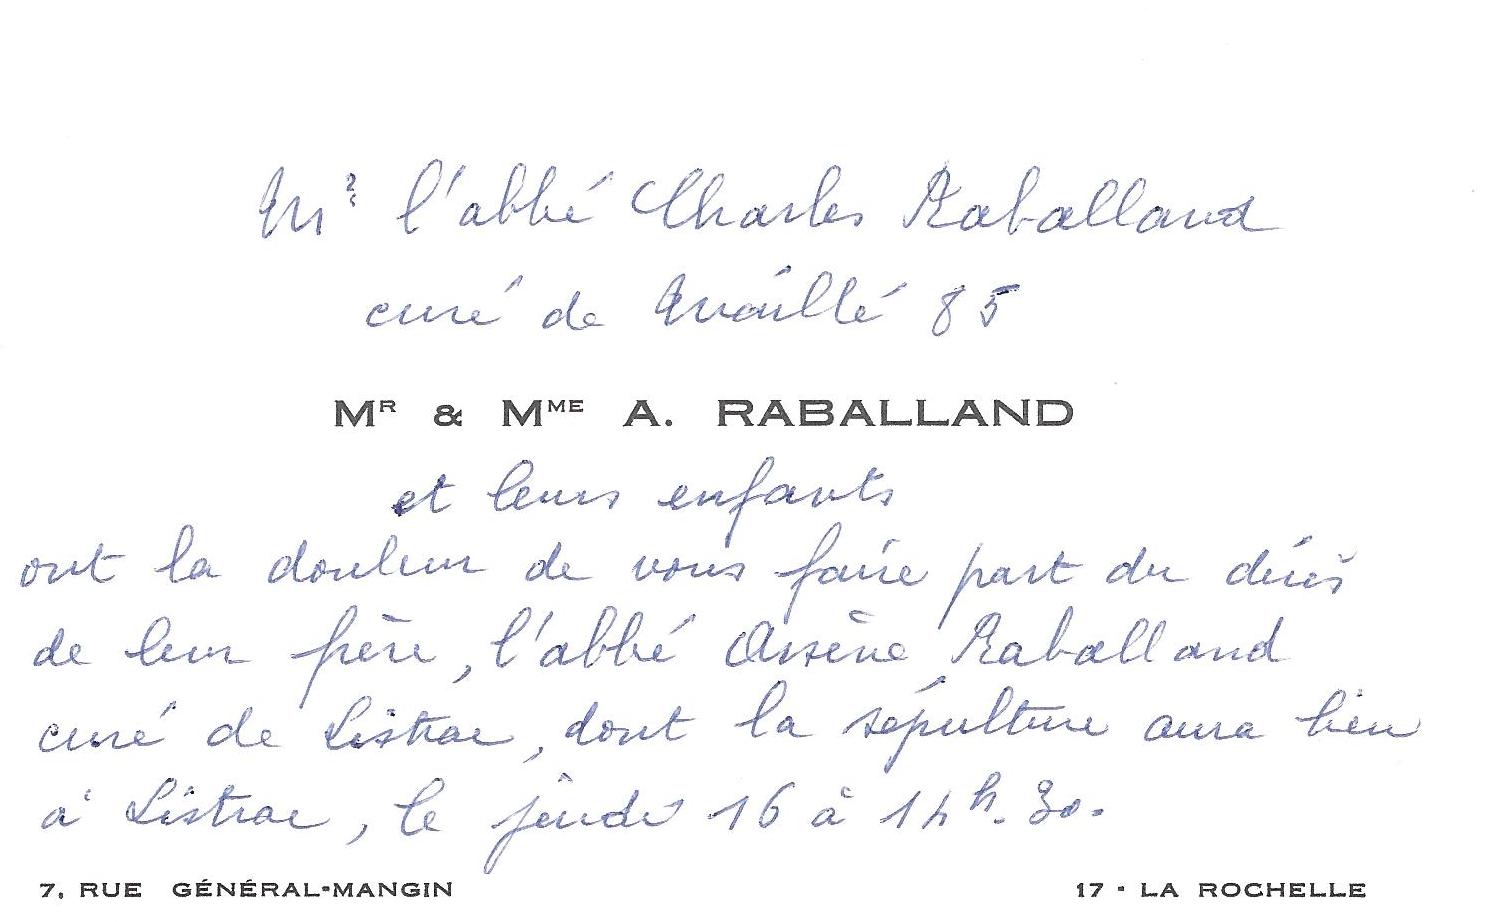 Mr l'abbé Charles Raballand
curé de Maillé 85
MR & MME A. RABALLAND
et leurs enfants
ont la douleur de vous faire part du décès
de leur frère, l'abbé Arsène Raballand
curé de Listrac, dont la sépulture aura lieu
à Listrac, le jeudi 16 à 14h.30.
7, RUE GÉNÉRAL-MANGIN
17 - LA ROCHELLE